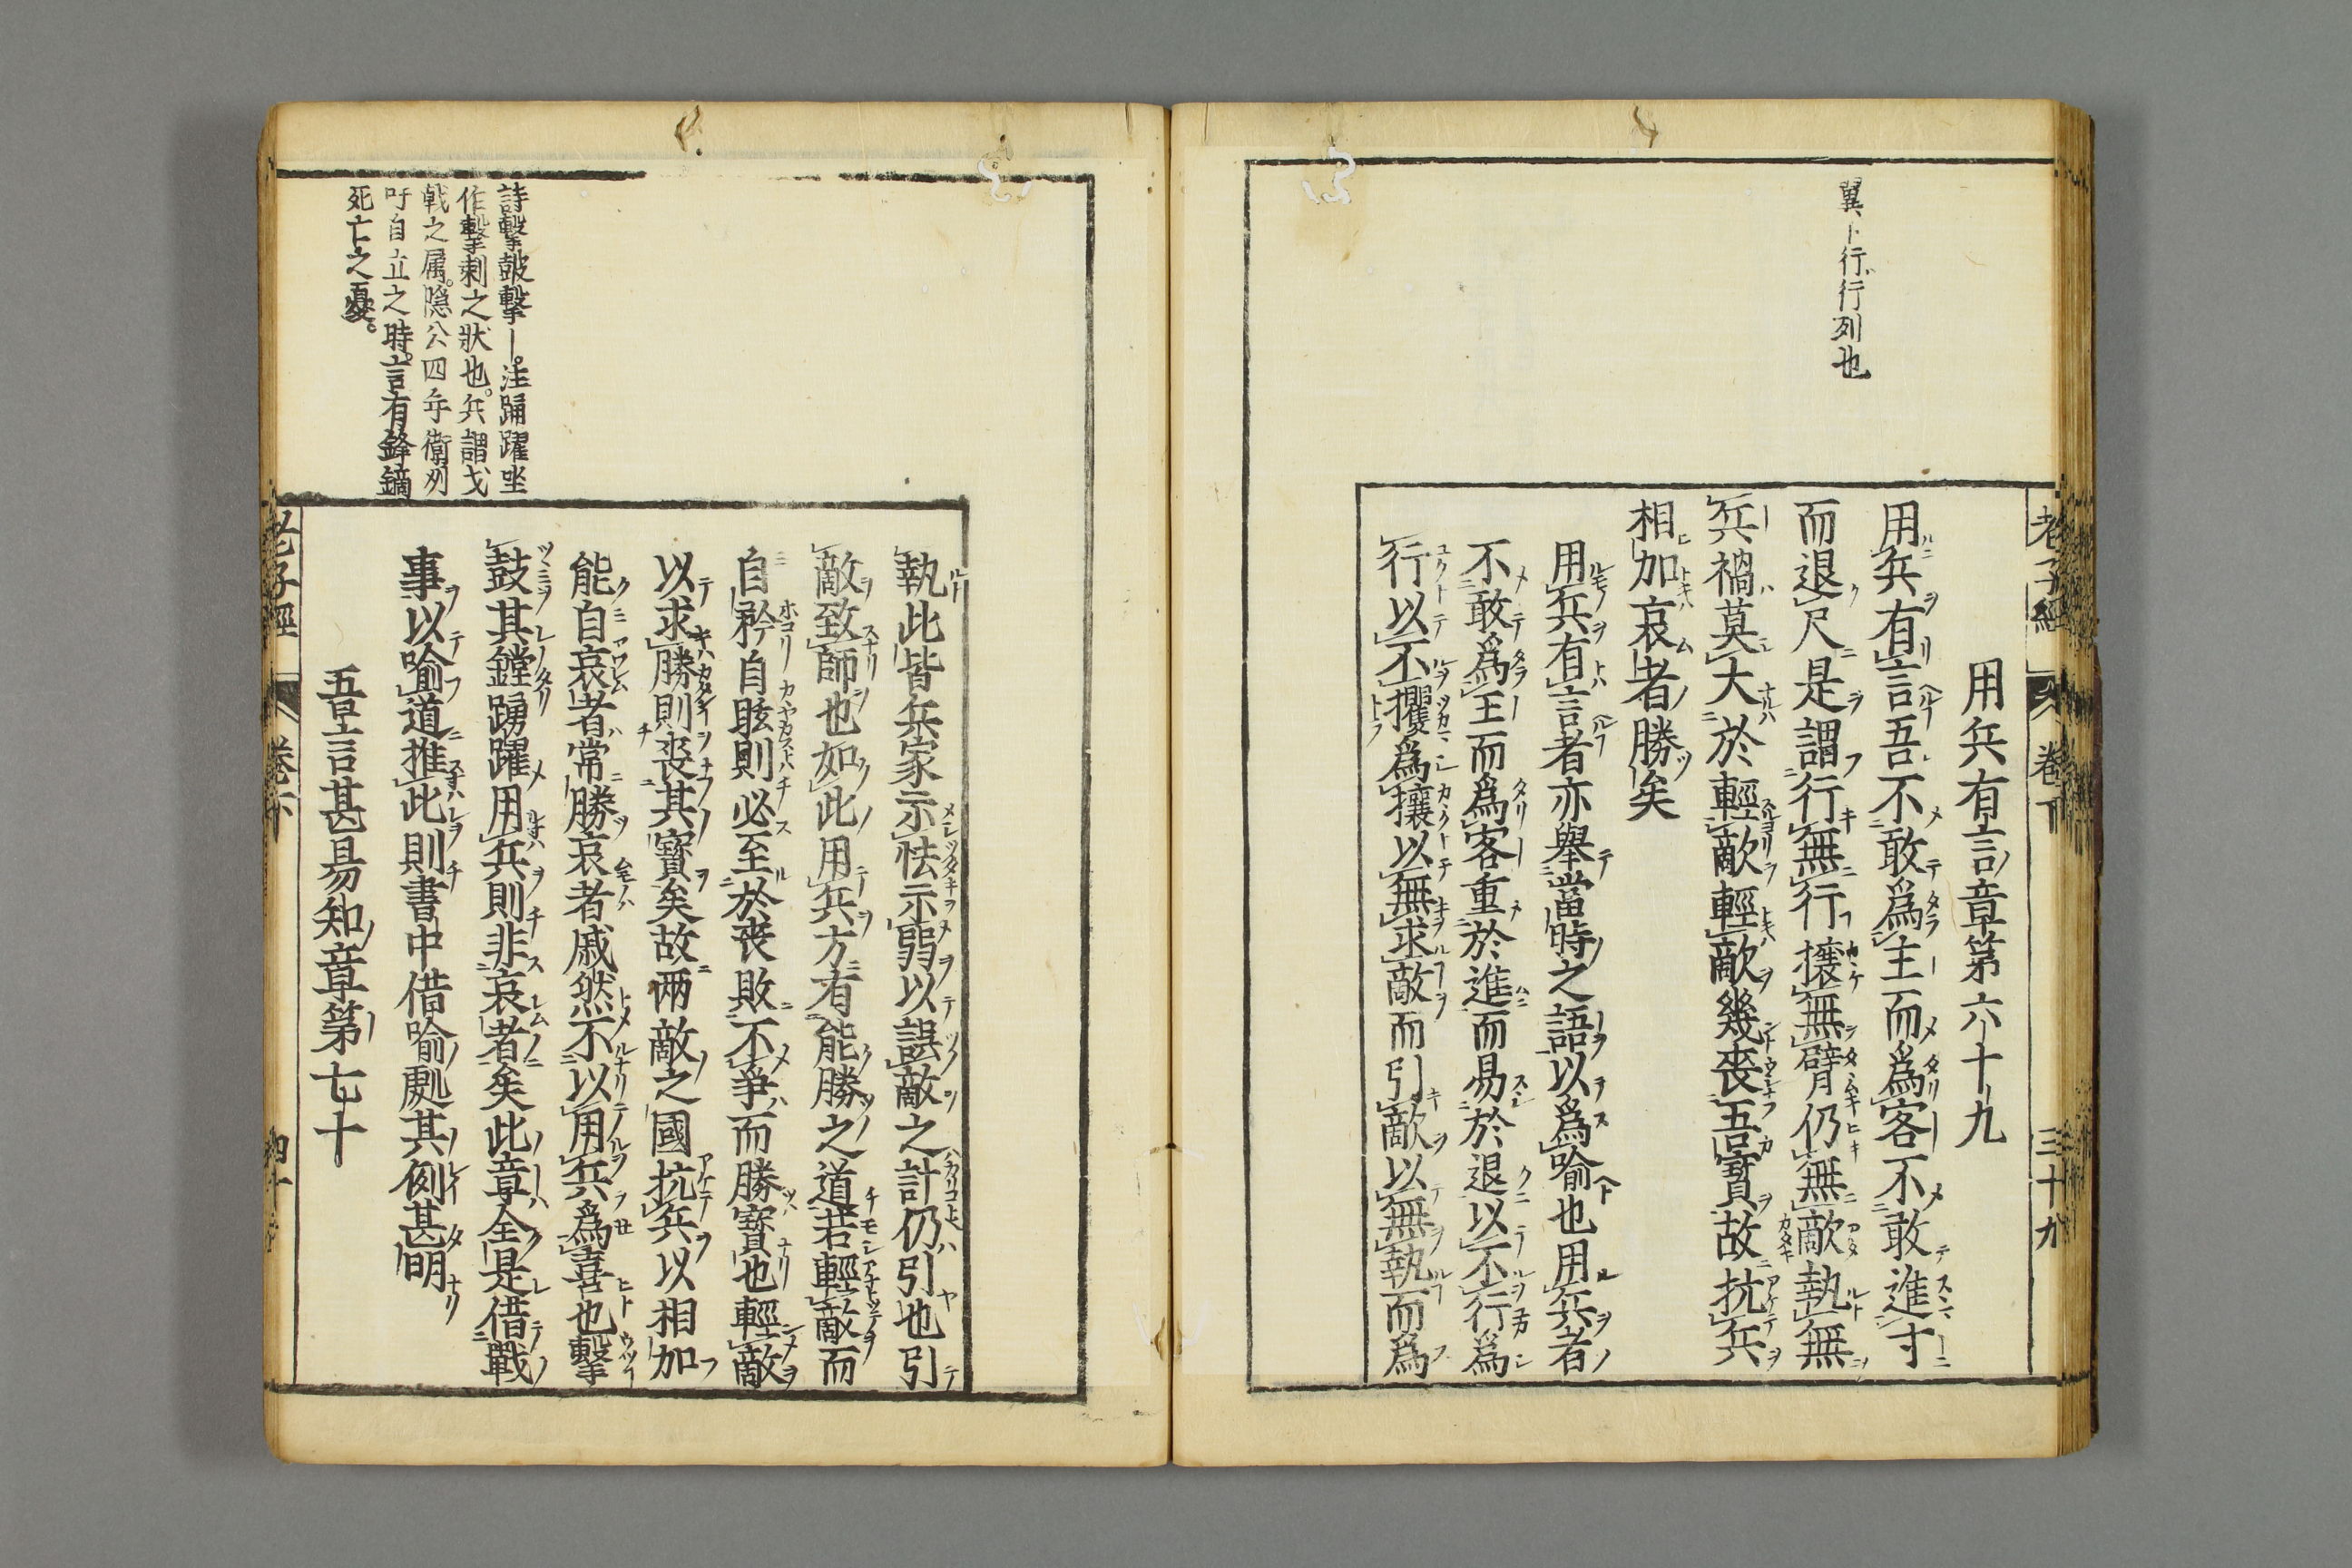 老子經 卷下 三十九
翼ト行行列也
用兵有言章第六十九
用兵有言吾不敢爲主而爲客不敢進寸
而退尺是謂行無行攘無臂仍無敵執無
兵禍莫大於輕敵輕敵幾喪吾寶故抗兵
相加哀者勝矣
用兵有言者亦舉當時之語以爲喻也用兵者
不敢爲主而爲客重於進而易於退以不行爲
行以不攫爲攘以無求敵而引敵以無執而爲
執此皆兵家示怯示弱以誤敵之計仍引也引
敵致師也如此用兵方有能勝之道若輕敵而
自矜自眩則必至於喪敗不爭而勝寶也輕敵
以求勝則喪其寶矣故兩敵之國抗兵以相加
能自哀者常勝哀者戚然不以用兵爲喜也擊
鼓其鏜踴躍用兵則非哀者矣此章全是借戰
事以喻道推此則書中借喻處其例甚明
吾言甚易知章第七十
詩擊鼓擊ー。注踊躍坐
作擊刺之狀也。兵謂戈
戟之属。隐公四年衛州
吁自立之時。言有鋒鏑
死亡之憂。
老子經 卷下 四十